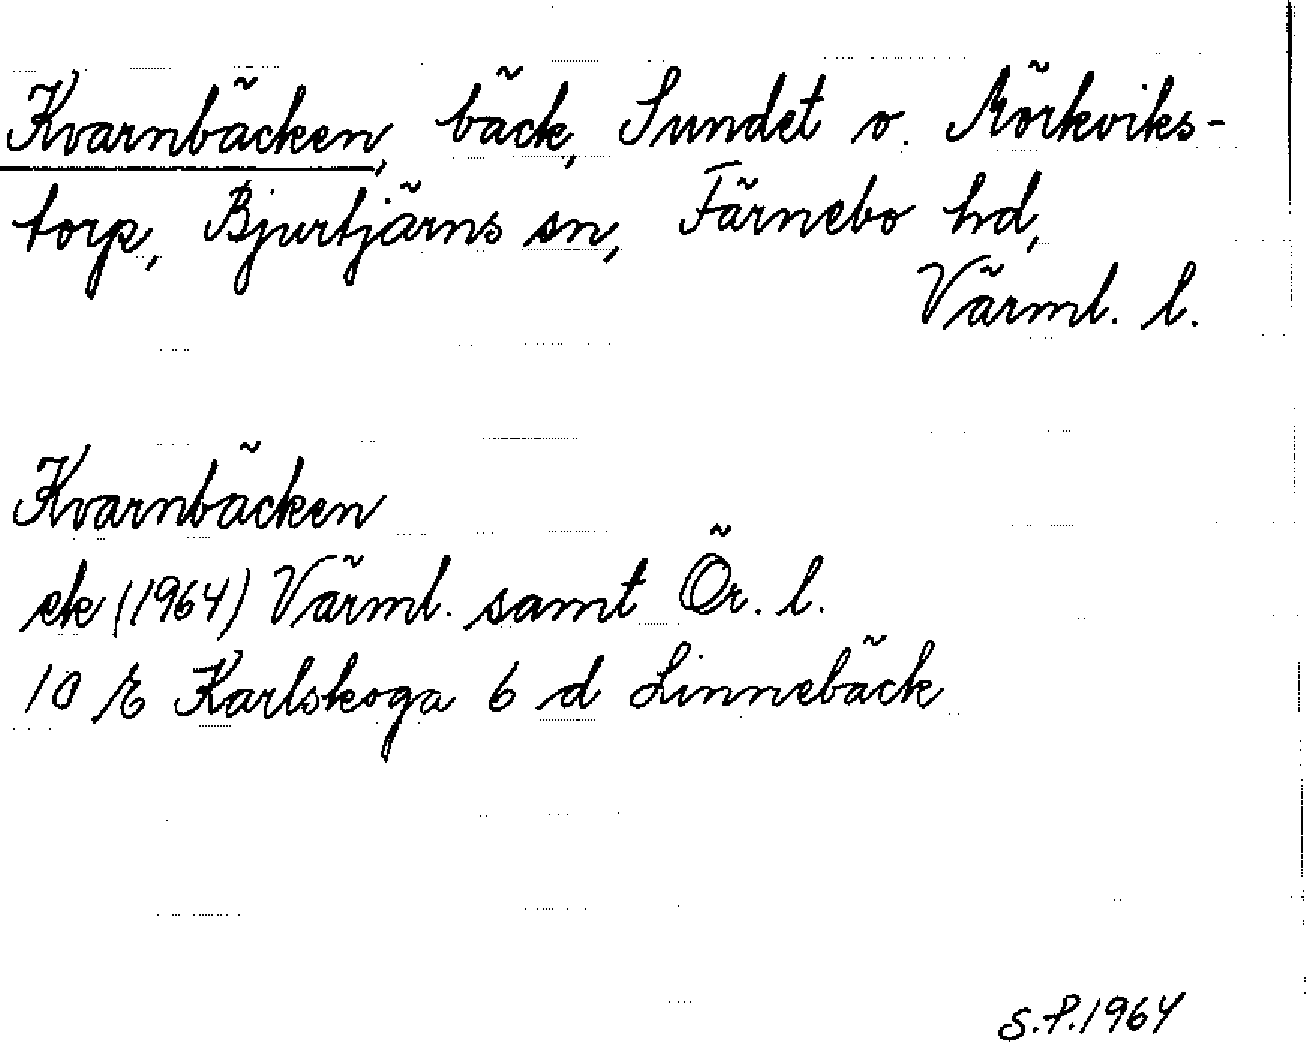 Kvarnbäcken, bäck, Sundet o. Mörkviks-
torp, Bjurtjärns sn, Färnebo hd,
Värml. l.
Kvarnbäcken
ek (1964) Värml. samt Ör. l.
10 E Karlskoga 6 d Linnebäck
S.P. 1964